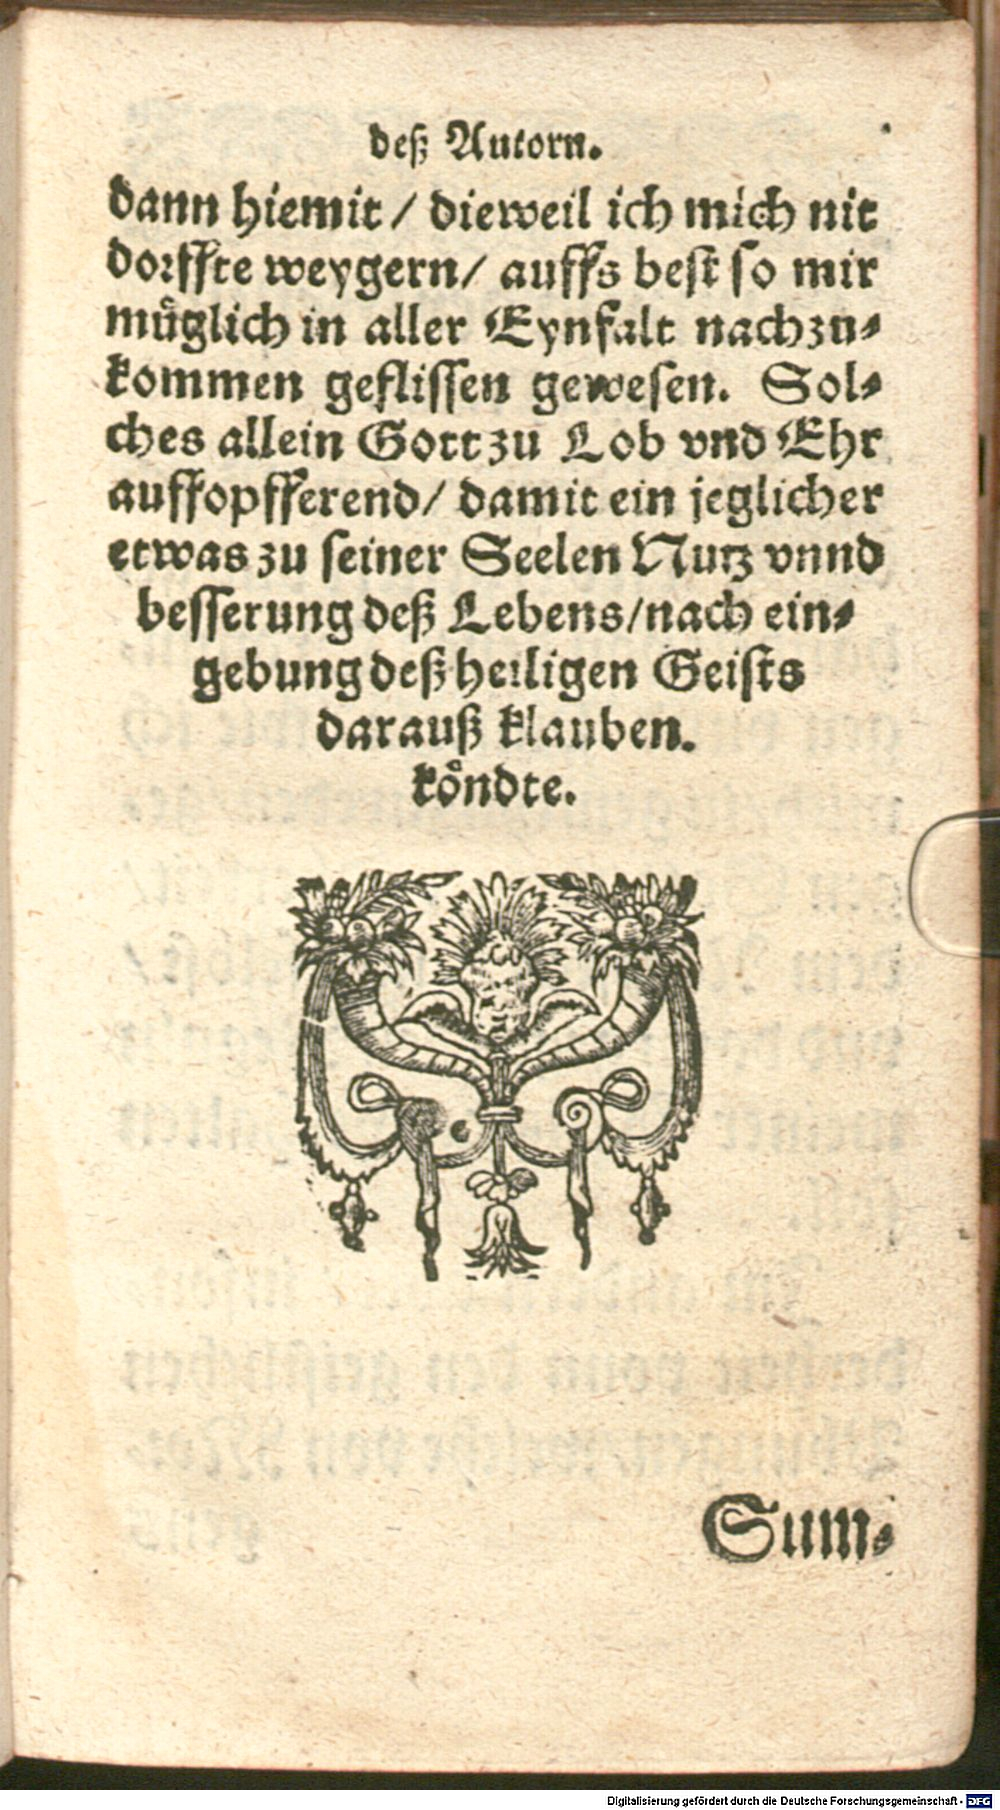 deß Autorn.
dann hiemit / dieweil ich mich nit
dorffte weygern / auffs best so mir
muͤglich in aller Eynfalt nachzu⸗
kommen geflissen gewesen. Sol⸗
ches allein Gott zu Lob vnd Ehr
auffopfferend / damit ein jeglicher
etwas zu seiner Seelen Nutz vnnd
besserung deß Lebens / nach ein⸗
gebung deß heiligen Geists
darauß klauben.
koͤndte.
Sum⸗
Digitalisierung gefördert durch die Deutsche Forschungsgemeinschaft - DFG